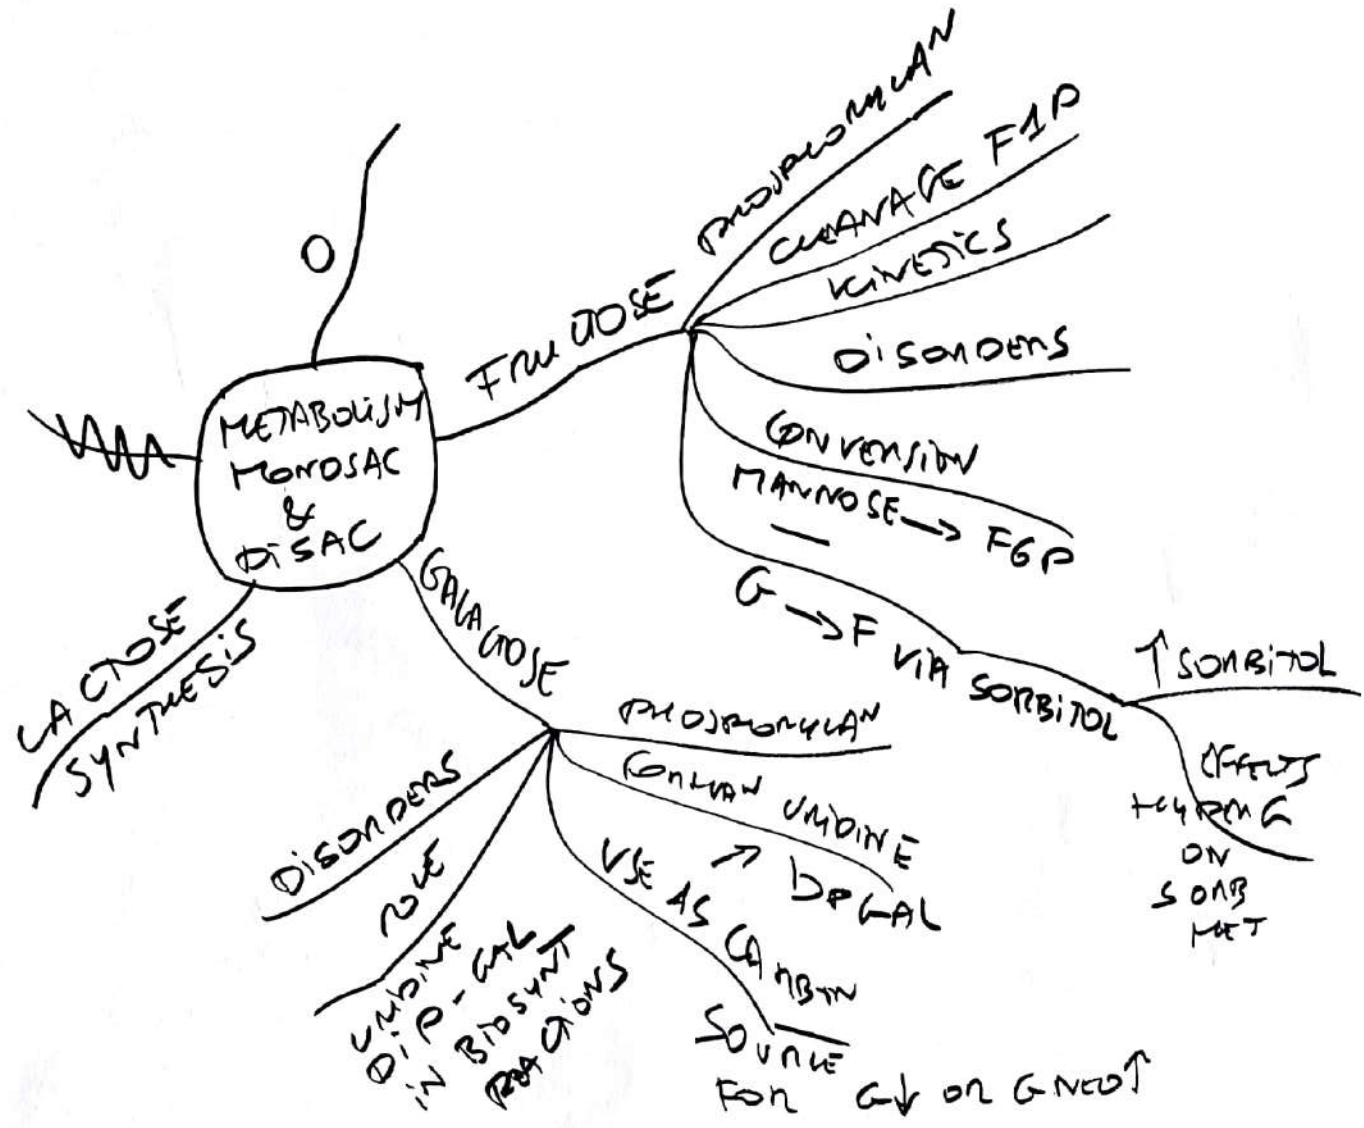 O
METABOLISM
MONOSAC
&
DISAC
FRUCTOSE
PHOSPHORYLAN
CLEAVAGE F1P
KINETICS
DISORDERS
CONVERSION
MANNOSE → F6P
G → F VIA SORBITOL
↑ SORBITOL
EFFECTS
HYPERG
ON
SORB
MET
GALACTOSE
PHOSPHORYLAN
FORMAN URIDINE
→ DPGAL
USE AS CARBON
SOURCE
FOR G↓ OR GNEO↑
ROLE
URIDINE
DI-P-GAL
IN BIOSYNT
REACTIONS
DISORDERS
LACTOSE
SYNTHESIS